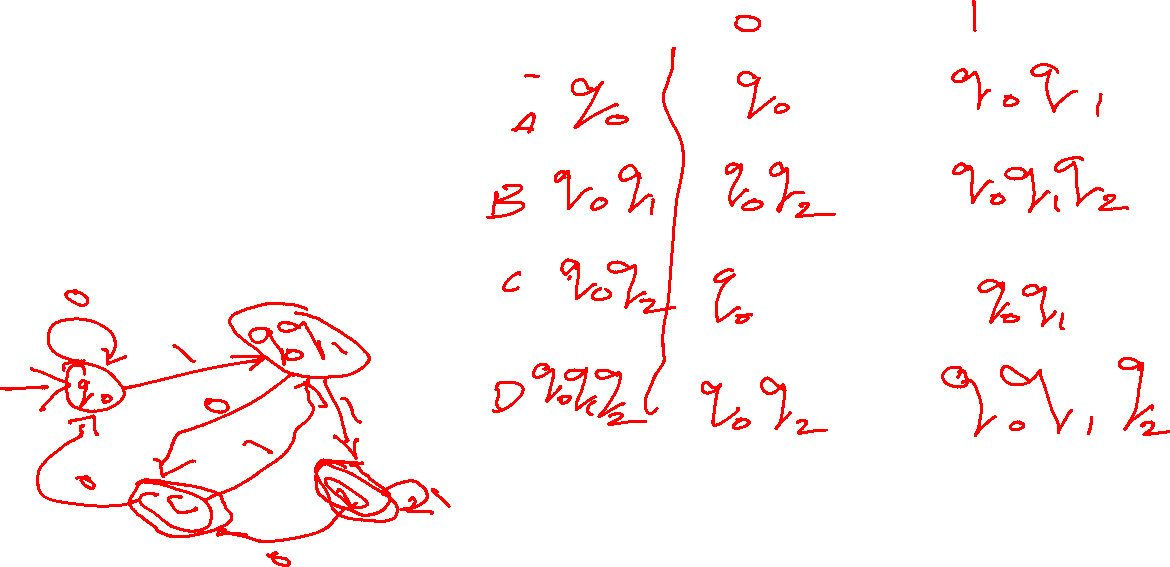 0 1
A q0 q0 q0q1
B q0q1 q0q2 q0q1q2
C q0q2 q0 q0q1
D q0q1q2 q0q2 q0q1q2
0
q0 1 q0q1
0 1 1
0 C 1
0